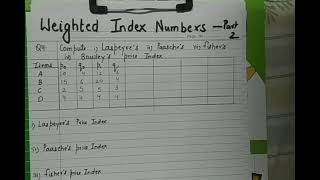 Weighted Index Numbers - Part 2
Q4 Compute i) Laspeyre's ii) Paasche's iii) Fisher's
iv) Bowley's price Index
Items p₀ q₀ p₁ q₁
A 10 4 12 6
B 15 6 20 4
C 2 5 5 3
D 4 4 4
i) Laspeyre's Price Index
ii) Paasche's price Index
iii) Fisher's price Index